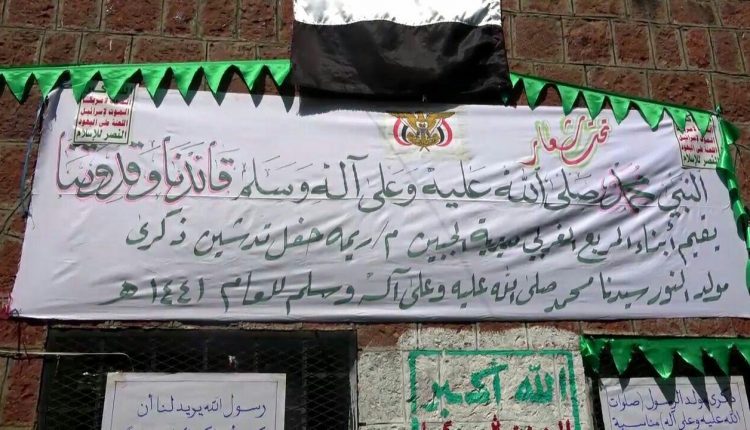 تحت شعار
النبي محمد صلى الله عليه وعلى آله وسلم قائدنا وقدوتنا
يقيم أبناء المربع الغربي مديرية الجبين م/ريمه حفل تدشين ذكرى
مولد النور سيدنا محمد صلى الله عليه وعلى آله وسلم للعام ١٤٤١هـ
الموت لأمريكا
الموت لإسرائيل
اللعنة على اليهود
النصر للإسلام
النصر للإسلام
الله أكبر
رسول الله يريد لنا أن
ذكرى مولد الرسول صلوات
الله عليه وعلى آله مناسبة